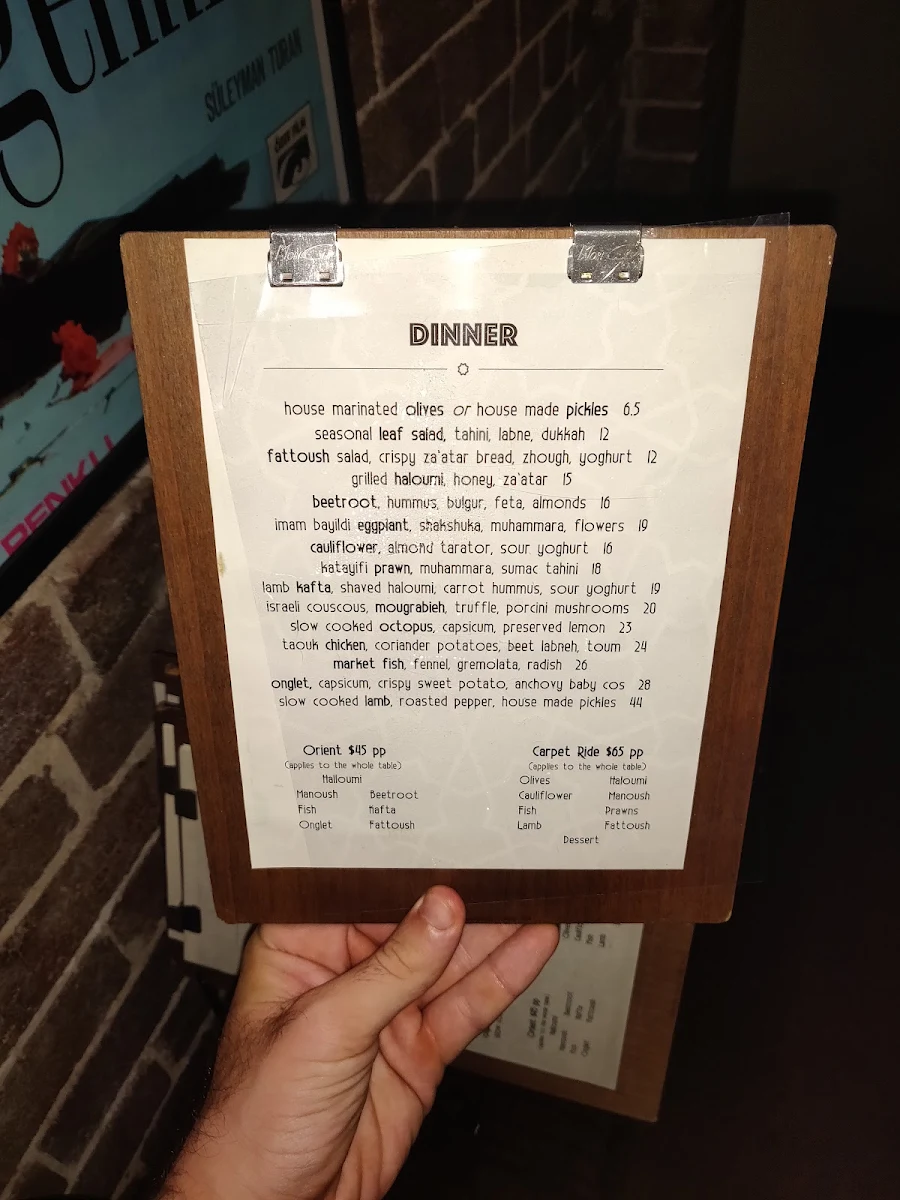 SÜLEYMAN TURAN
DINNER
house marinated olives or house made pickles 6.5
seasonal leaf salad, tahini, labne, dukkah 12
fattoush salad, crispy za'atar bread, zhough, yoghurt 12
grilled haloumi, honey, za'atar 15
beetroot, hummus, bulgur, feta, almonds 16
imam bayildi eggplant, shakshuka, muhammara, flowers 19
cauliflower, almond tarator, sour yoghurt 16
katayifi prawn, muhammara, sumac tahini 18
lamb kafta, shaved haloumi, carrot hummus, sour yoghurt 19
israeli couscous, mougrabieh, truffle, porcini mushrooms 20
slow cooked octopus, capsicum, preserved lemon 23
taouk chicken, coriander potatoes, beet labneh, toum 24
market fish, fennel, gremolata, radish 26
onglet, capsicum, crispy sweet potato, anchovy baby cos 28
slow cooked lamb, roasted pepper, house made pickles 44
Orient $45 pp
(applies to the whole table)
Halloumi
Manoush Beetroot
Fish Kafta
Onglet Fattoush
Carpet Ride $65 pp
(applies to the whole table)
Olives Haloumi
Cauliflower Manoush
Fish Prawns
Lamb Fattoush
Dessert
RENKLI